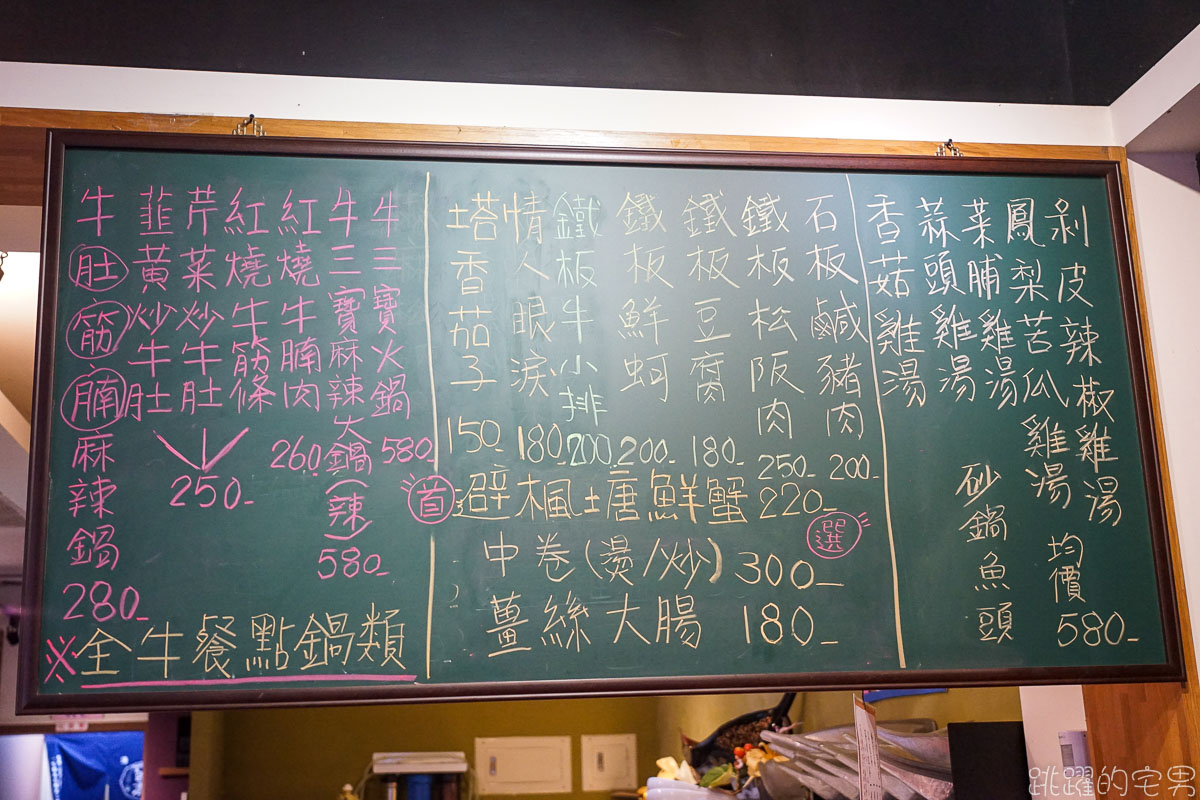 剝皮辣椒雞湯
鳳梨苦瓜雞湯
菜脯雞湯
蒜頭雞湯
香菇雞湯
砂鍋魚頭
均價
580-
石板鹹豬肉
200-
鐵板松阪肉
250-
鐵板豆腐
180-
鐵板鮮蚵
200-
鐵板牛小排
200-
情人眼淚
180-
塔香茄子
150-
首
避楓塘鮮蟹 220-
選
中卷(燙/炒) 300-
薑絲大腸 180-
牛三寶火鍋
580-
牛三寶麻辣火鍋(辣)
580-
紅燒牛腩肉
260-
紅燒牛筋條
芹菜炒牛肚
韮黃炒牛肚
250-
牛肚筋腩麻辣鍋
280-
※全牛餐點鍋類
跳躍的宅男